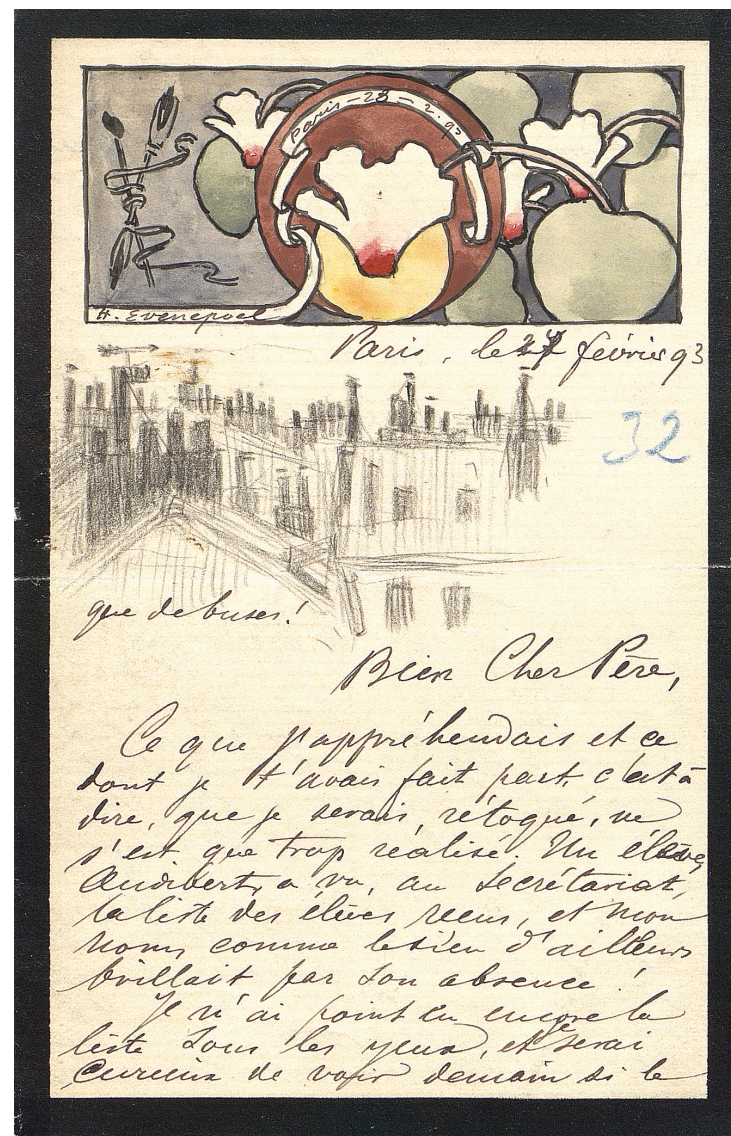 Paris - 28 - 2. 93
H. Evenepoel
Paris, le 27 février 93
32
que de buses!
Bien Cher Père,
Ce que j'appréhendais et ce
dont je t'avais fait part, c'est à
dire, que je serais, rétoqué, ne
s'est que trop réalisé. Un élève,
Audibert, a vu, au Secrétariat,
la liste des élèves reçus, et mon
nom, comme le sien d'ailleurs
brillait par son absence!
Je n'ai point eu encore la
liste sous les yeux, et je serai
curieux de voir demain si le